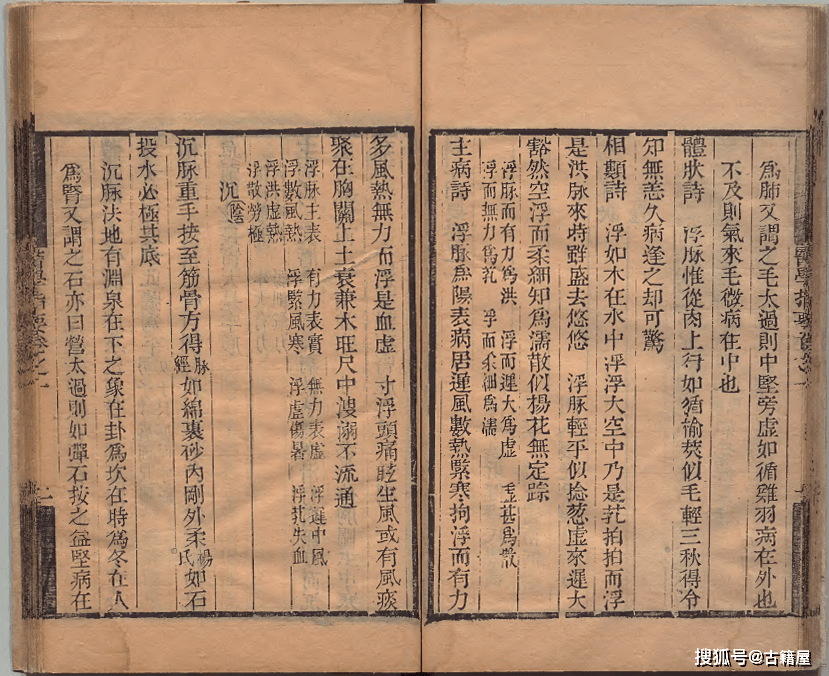 為肺又謂之毛太過則中堅旁虛如循雞羽病在外也
不及則氣來毛微病在中也
體狀詩 浮脉惟從肉上行如循揄莢似毛輕三秋得令
知無恙久病逢之却可驚
相類詩 浮如木在水中浮浮大空中乃是芤拍拍而浮
是洪脉來時雖盛去悠悠 浮脉輕平似捻葱虛來遲大
豁然空浮而柔細知為濡散似楊花無定踪
浮脉而有力為洪 浮而遲大為虛 甚為散
浮而無力為芤 而柔細為濡
主病詩 浮脉為陽表病居遲風數熱緊寒拘浮而有力
多風熱無力而浮是血虛 寸浮頭痛眩生風或有風痰
聚在胸關上土衰兼木旺尺中溲溺不流通
浮脉主表 表實 無力表虛 浮遲中風
浮數風熱 浮緊風寒 浮虛傷暑 浮芤失血
浮洪虛熱
浮散勞極
沉陰
沉脉重手按至筋骨方得脉經如綿裹砂內剛外柔楊氏如石
投水必極其底
沉脉法地有淵泉在下之象在卦為坎在時為冬在人
為腎又謂之石亦曰營太過則如彈石按之益堅病在
搜狐号@古籍屋